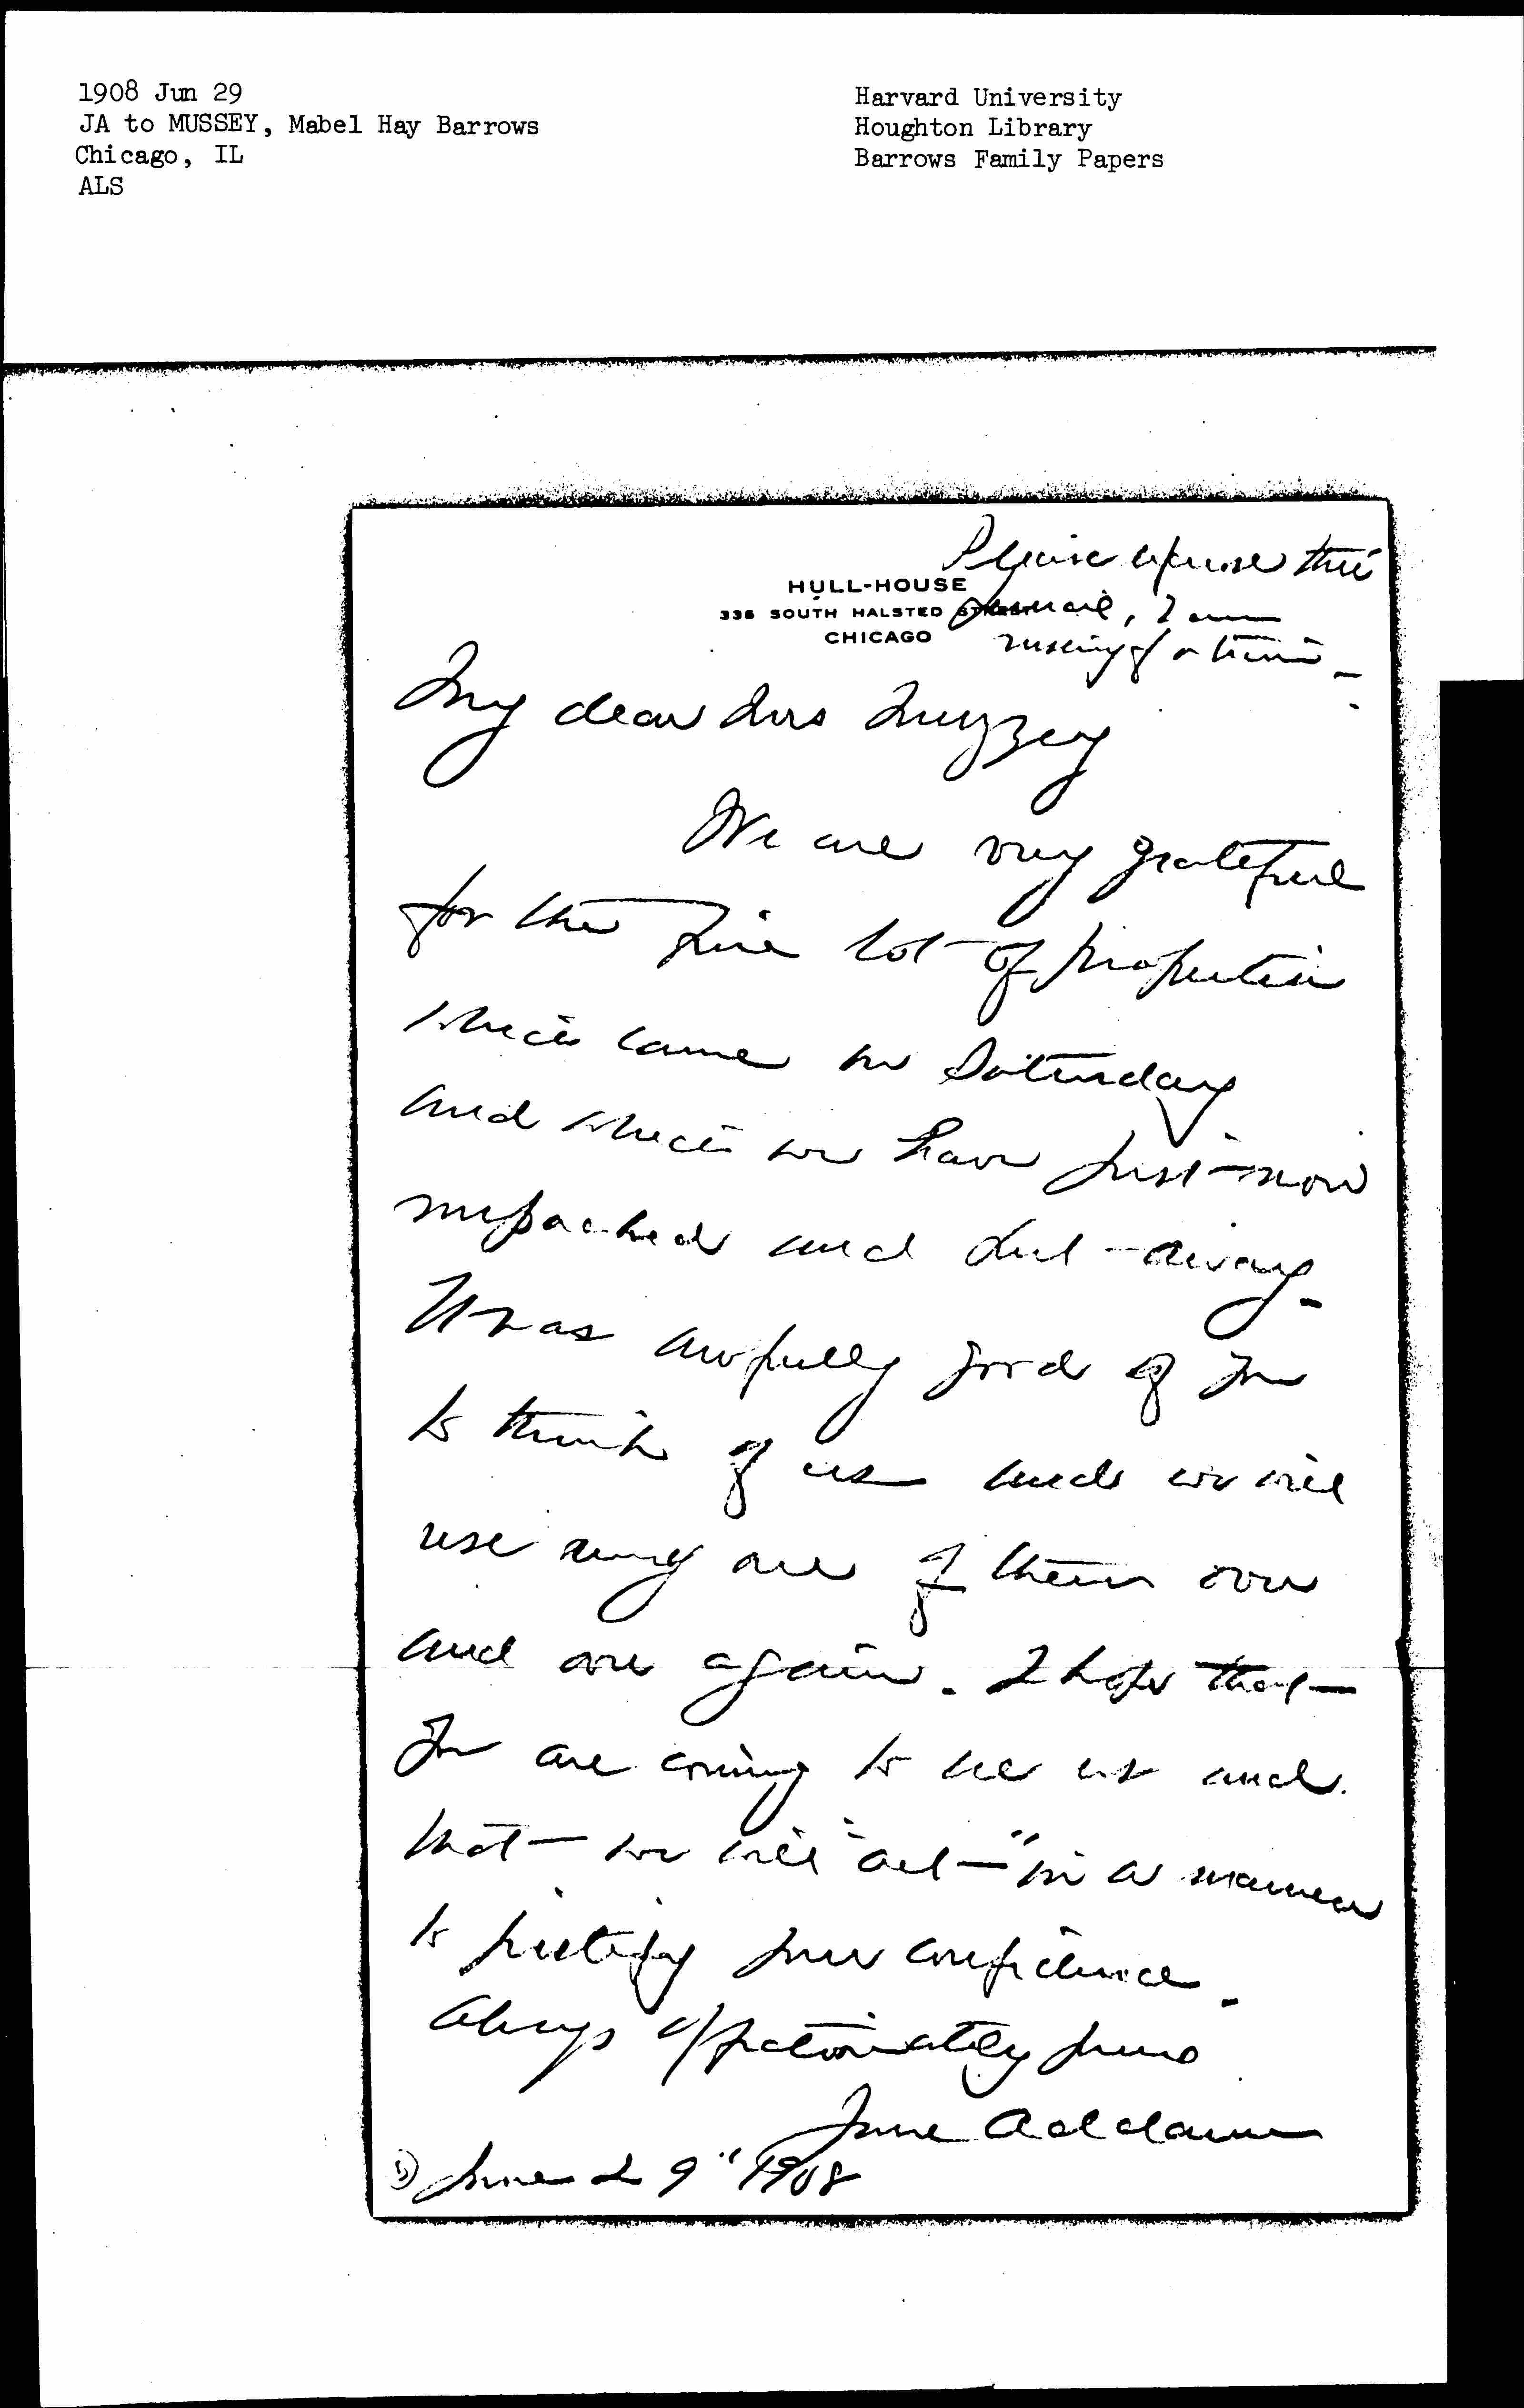 1908 Jun 29
JA to MUSSEY, Mabel Hay Barrows
Chicago, IL
ALS
Harvard University
Houghton Library
Barrows Family Papers
Please excuse this
HULL-HOUSE
335 SOUTH HALSTED STREET
CHICAGO
pencil, I am
rushing for a train –
My dear Mrs Muzzey
We are very grateful
for the fine lot of properties
which came on Saturday
and which we have just now
unpacked and put away –
It was awfully good of you
to think of us and we will
use every one of them over
and over again. I hope that
you are coming to see us and
that we will "act" in a manner
to justify your confidence –
Always affectionately yours
Jane Addams
June 29" 1908